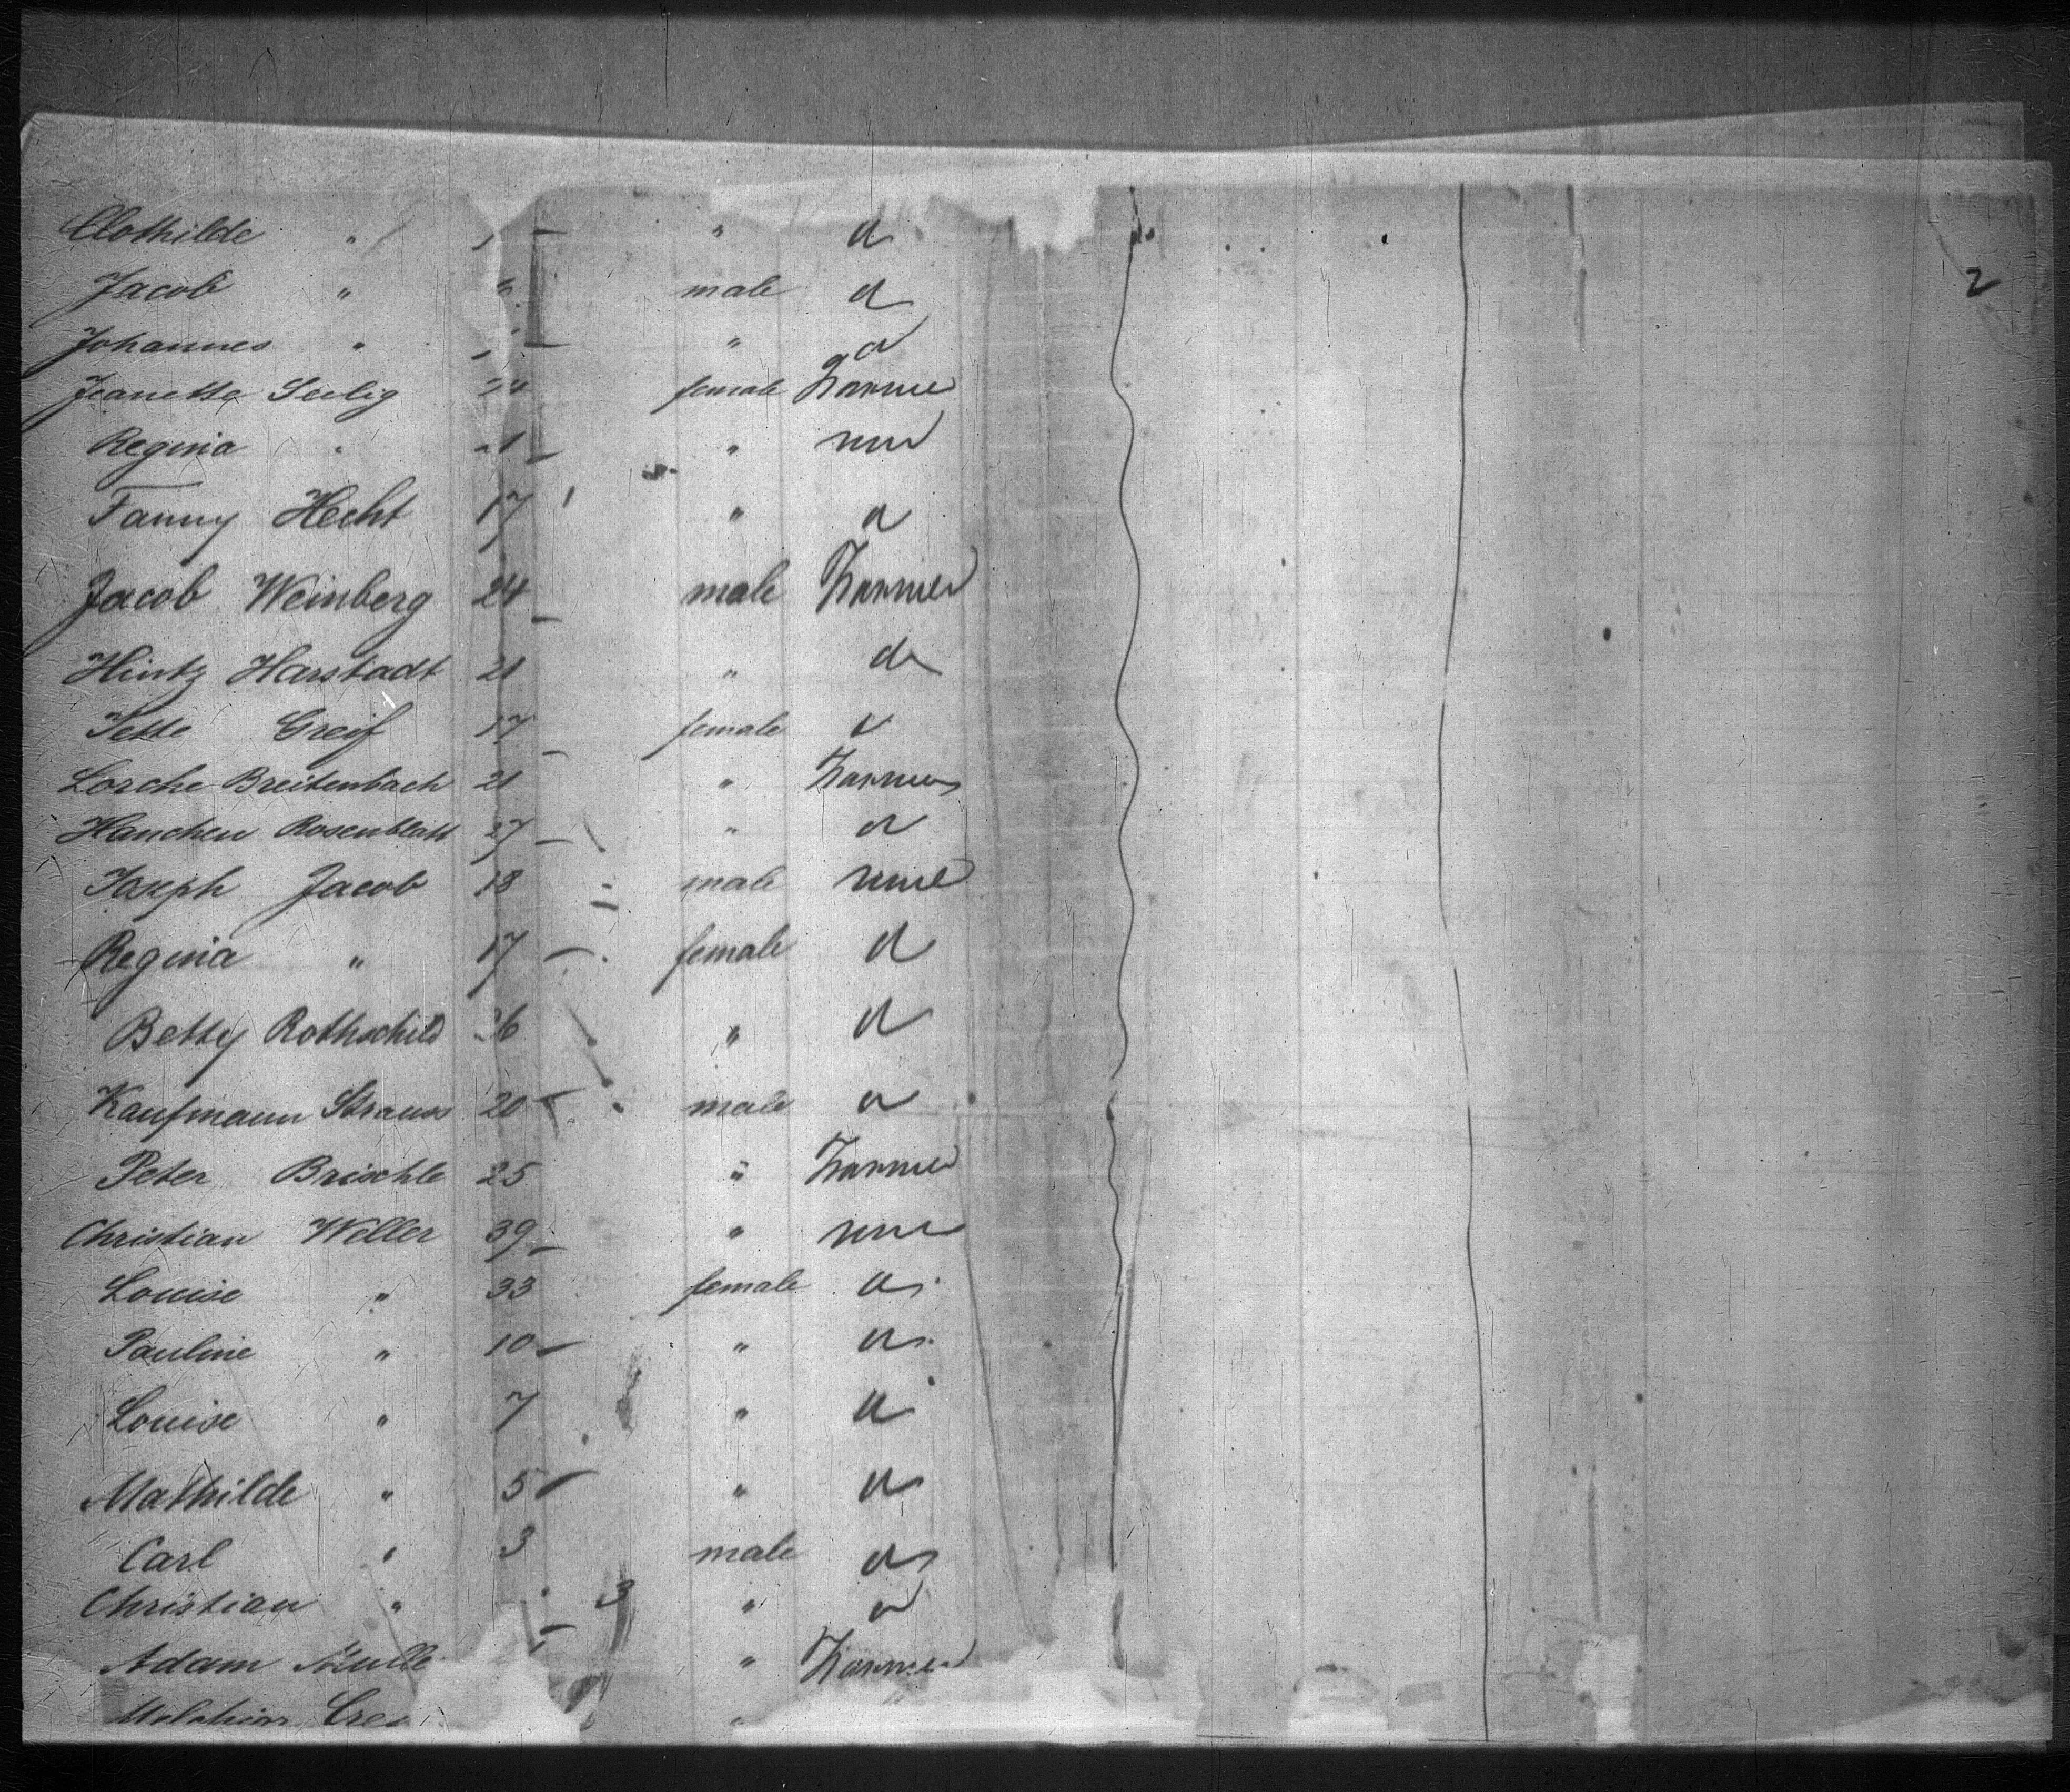 Clothilde " " d
2
Jacob " male d
Johannes " " d
Jeanette Seelig 24 female Farmer
Regina " 21 " none
Fanny Hecht 17 " d
Jacob Weinberg 24 male Farmer
Hintz Harstadt 21 " do
Jette Greif 17 female
Lorche Breitenbach 21 " Farmer
Hanchen Rosenblatt 27 " d
Joseph Jacob 18 male none
Regina " 17 female d
Betty Rothschild 26 " d
Kaufmann Strauss 20 male d
Peter Brischle 25 " Farmer
Christian Weller 39 " none
Louise " 33 female d
Pauline " 10 " d
Louise " 7 " d
Mathilde " 5 " d
Carl " 3 male d
Christian " 3 " d
Adam Mulle " Farmer
"